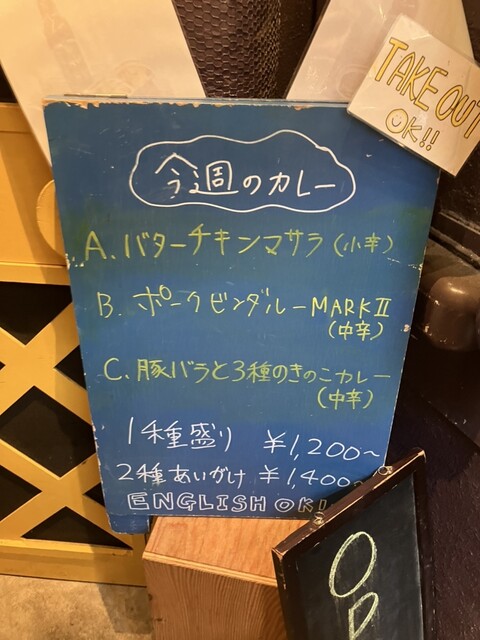 TAKE OUT
OK!!
今週のカレー
A. バターチキンマサラ (小辛)
B. ポークビンダルーMARKⅡ
(中辛)
C. 豚バラと3種のきのこカレー
(中辛)
1種盛り ¥1,200~
2種あいがけ ¥1,400~
ENGLISH OK!